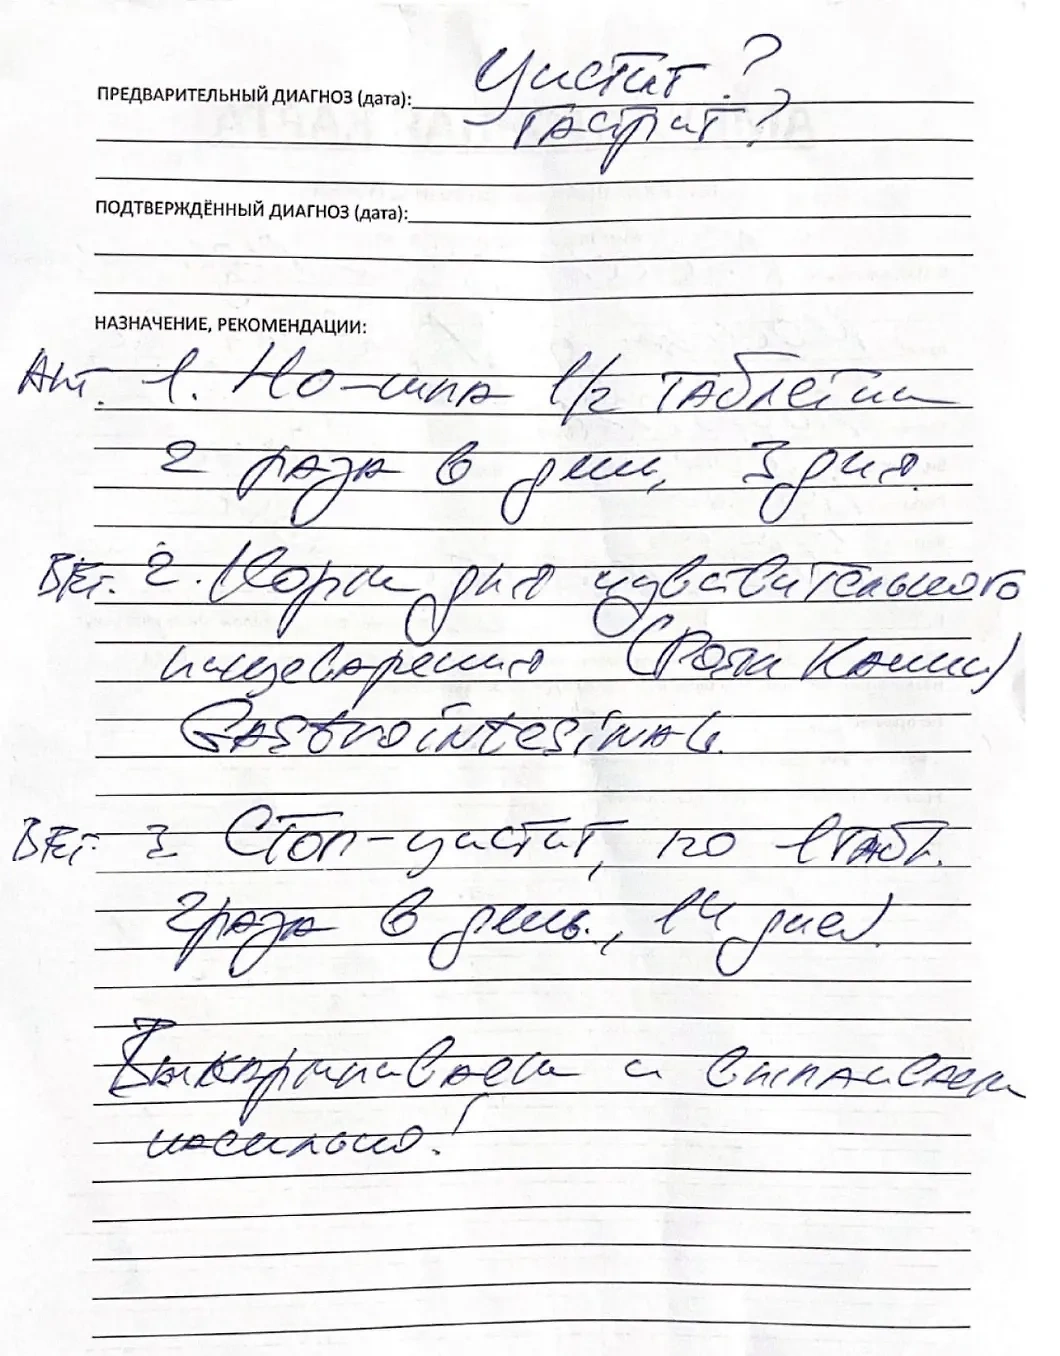 Цистит?
ПРЕДВАРИТЕЛЬНЫЙ ДИАГНОЗ (дата):
Гастрит?
ПОДТВЕРЖДЁННЫЙ ДИАГНОЗ (дата):
НАЗНАЧЕНИЕ, РЕКОМЕНДАЦИИ:
Апт. 1. Но-шпа 1/2 таблетки
2 раза в день, 3 дня.
Вет. 2. Корм для чувствительного
пищеварения (Роял Канин)
Gastrointesinal.
Вет. 3 Стоп-цистит, по 1 табл.
2 раза в день., 14 дней.
Выкармливаем и выпаиваем
насильно!